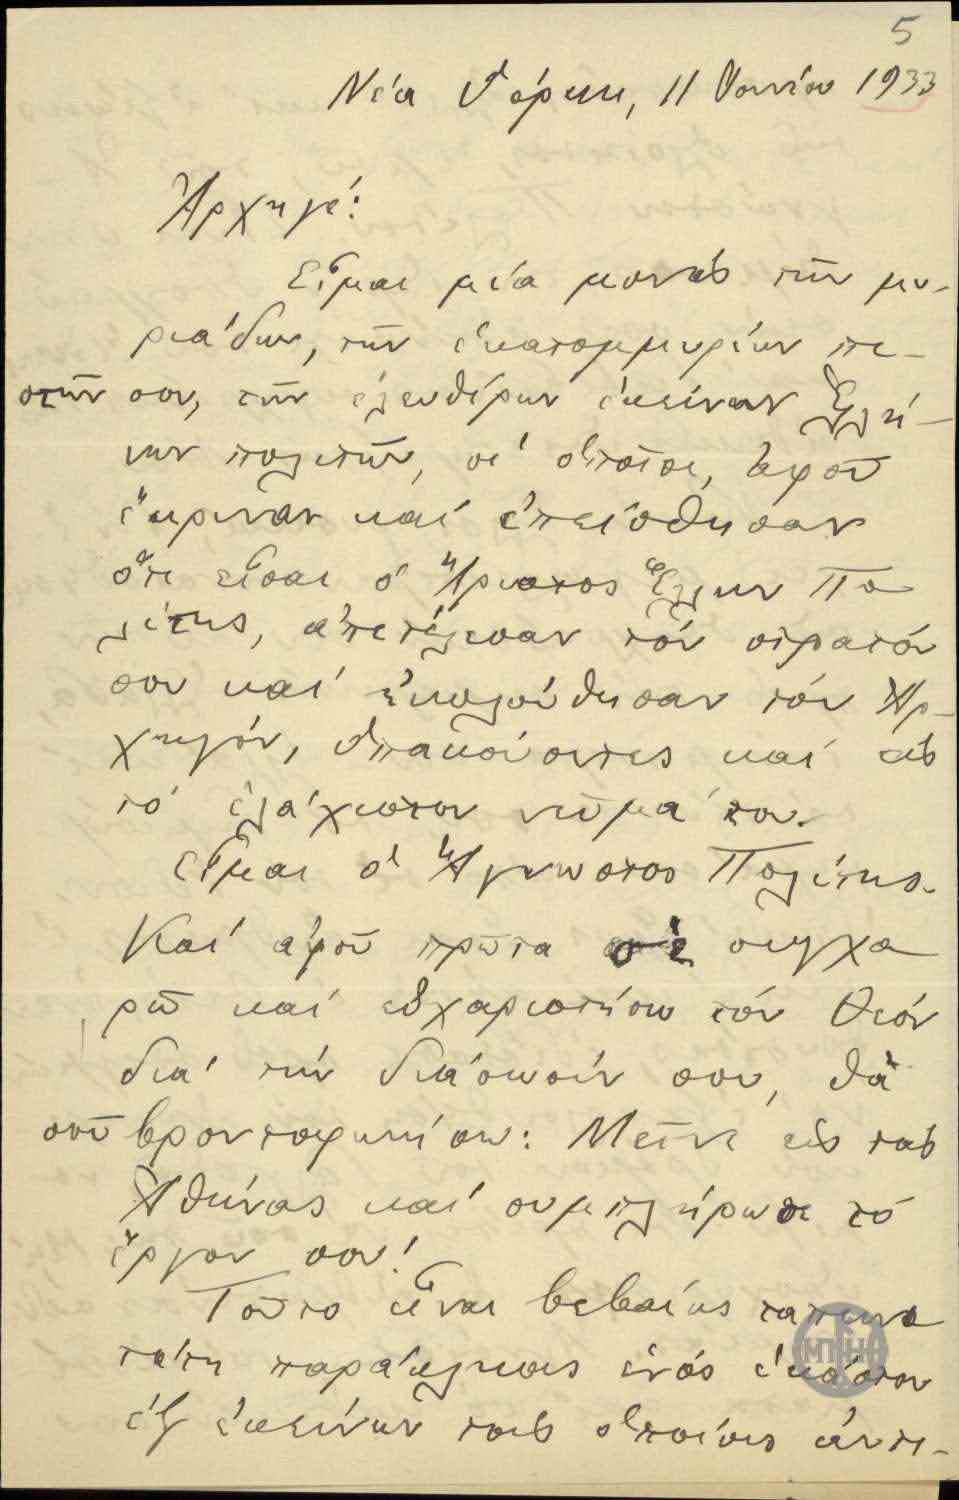 5
Νέα Υόρκη, 11 Ἰουνίου 1933
Ἀρχηγέ:
Εἶμαι μία μονάς τῶν μυ-
ριάδων, τῶν ἑκατομμυρίων πι-
στῶν σου, τῶν ἐλευθέρων ἐκείνων Ἑλλή-
νων πολιτῶν, οἱ ὁποῖοι, ἀφοῦ
ἔκριναν καί ἐπείσθησαν
ὅτι εἶσαι ὁ Ἄριστος Ἕλλην Πο
λίτης, ἀπετέλεσαν τόν στρατόν
σου καί ἠκολούθησαν τόν Ἀρ-
χηγόν, ὑπακούοντες καί εἰς
τό ἐλάχιστον νεῦμά του.
Εἶμαι ὁ Ἄγνωστος Πολίτης.
Καί ἀφοῦ πρῶτα σέ συγχα
ρῶ καί εὐχαριστήσω τόν Θεόν
διά τήν διάσωσίν σου, θά
σοῦ βροντοφωνήσω: Μεῖνε εἰς τάς
Ἀθήνας καί συμπλήρωσε τό
ἔργον σου!
Τοῦτο εἶναι βεβαίως ταπεινο
τάτη παράκλησις ἑνός ἑκάστου
ἐξ ἐκείνων τούς ὁποίους ἀντι-
ΜΠΗ